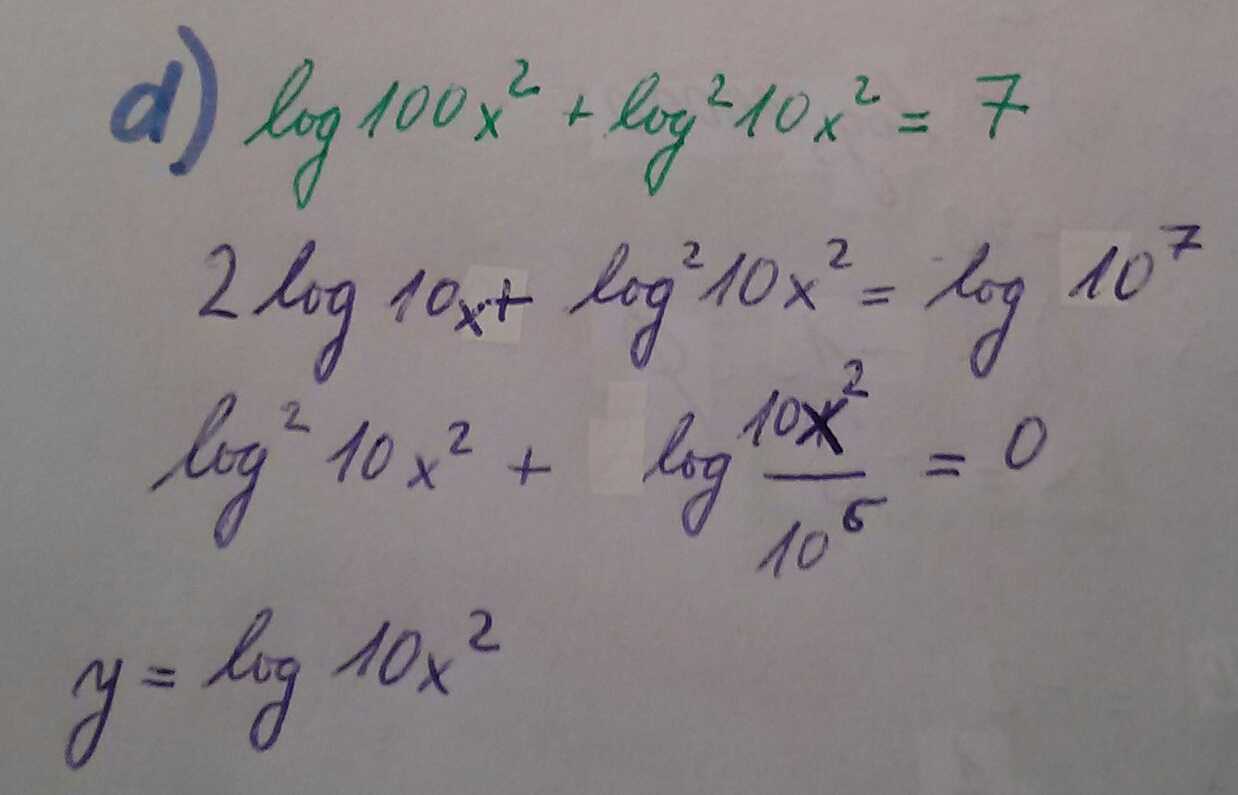 d) log 100x² + log² 10x² = 7
2 log 10x + log² 10x² = log 10⁷
log² 10x² + log 10x²/10⁶ = 0
y = log 10x²